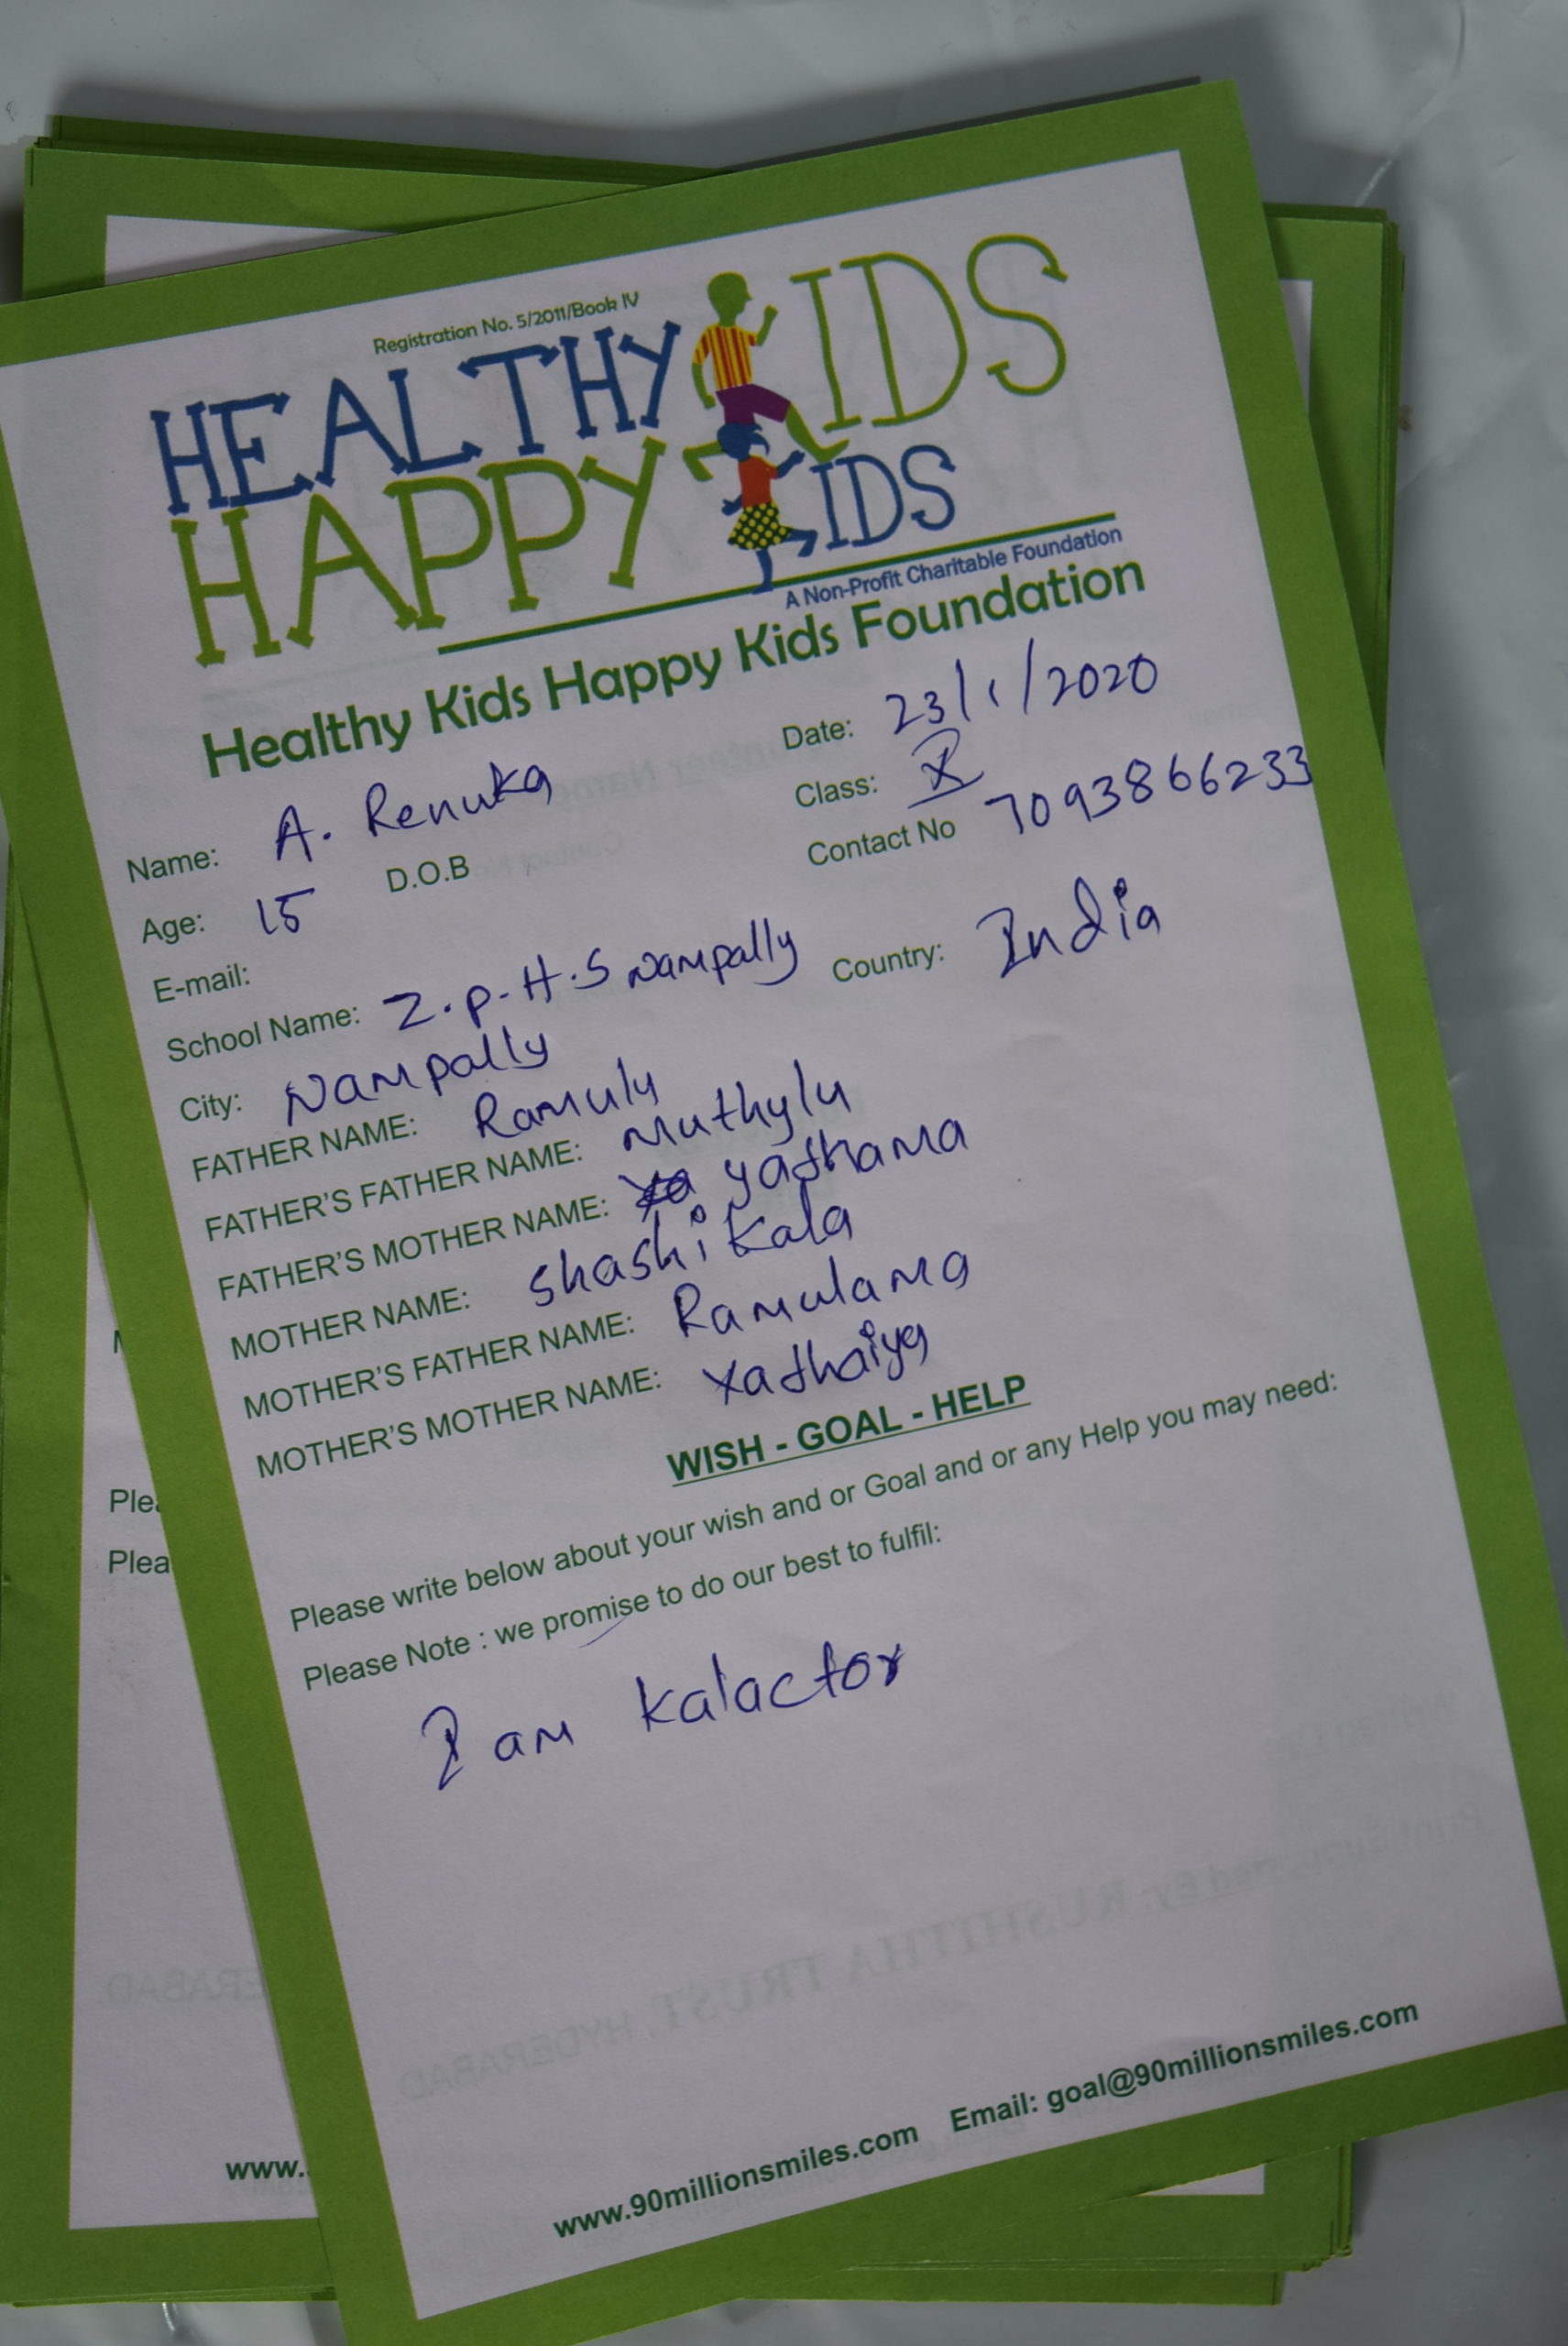 Registration No. 5/2011/Book IV
HEALTHY KIDS
HAPPY KIDS
A Non-Profit Charitable Foundation
Healthy Kids Happy Kids Foundation
Date: 23/1/2020
Name: A. Renuka Class: X
Age: 15 D.O.B Contact No 7093866233
E-mail:
School Name: Z.P.H.S Nampally Country: India
City: Nampally
FATHER NAME: Ramulu
FATHER'S FATHER NAME: Muthylu
FATHER'S MOTHER NAME: yathama
MOTHER NAME: Shashikala
MOTHER'S FATHER NAME: Ramulama
MOTHER'S MOTHER NAME: Yathaiya
WISH - GOAL - HELP
Please write below about your wish and or Goal and or any Help you may need:
Please Note : we promise to do our best to fulfil:
I am kalactor
www.90millionsmiles.com Email: goal@90millionsmiles.com
Plea
Plea
www.